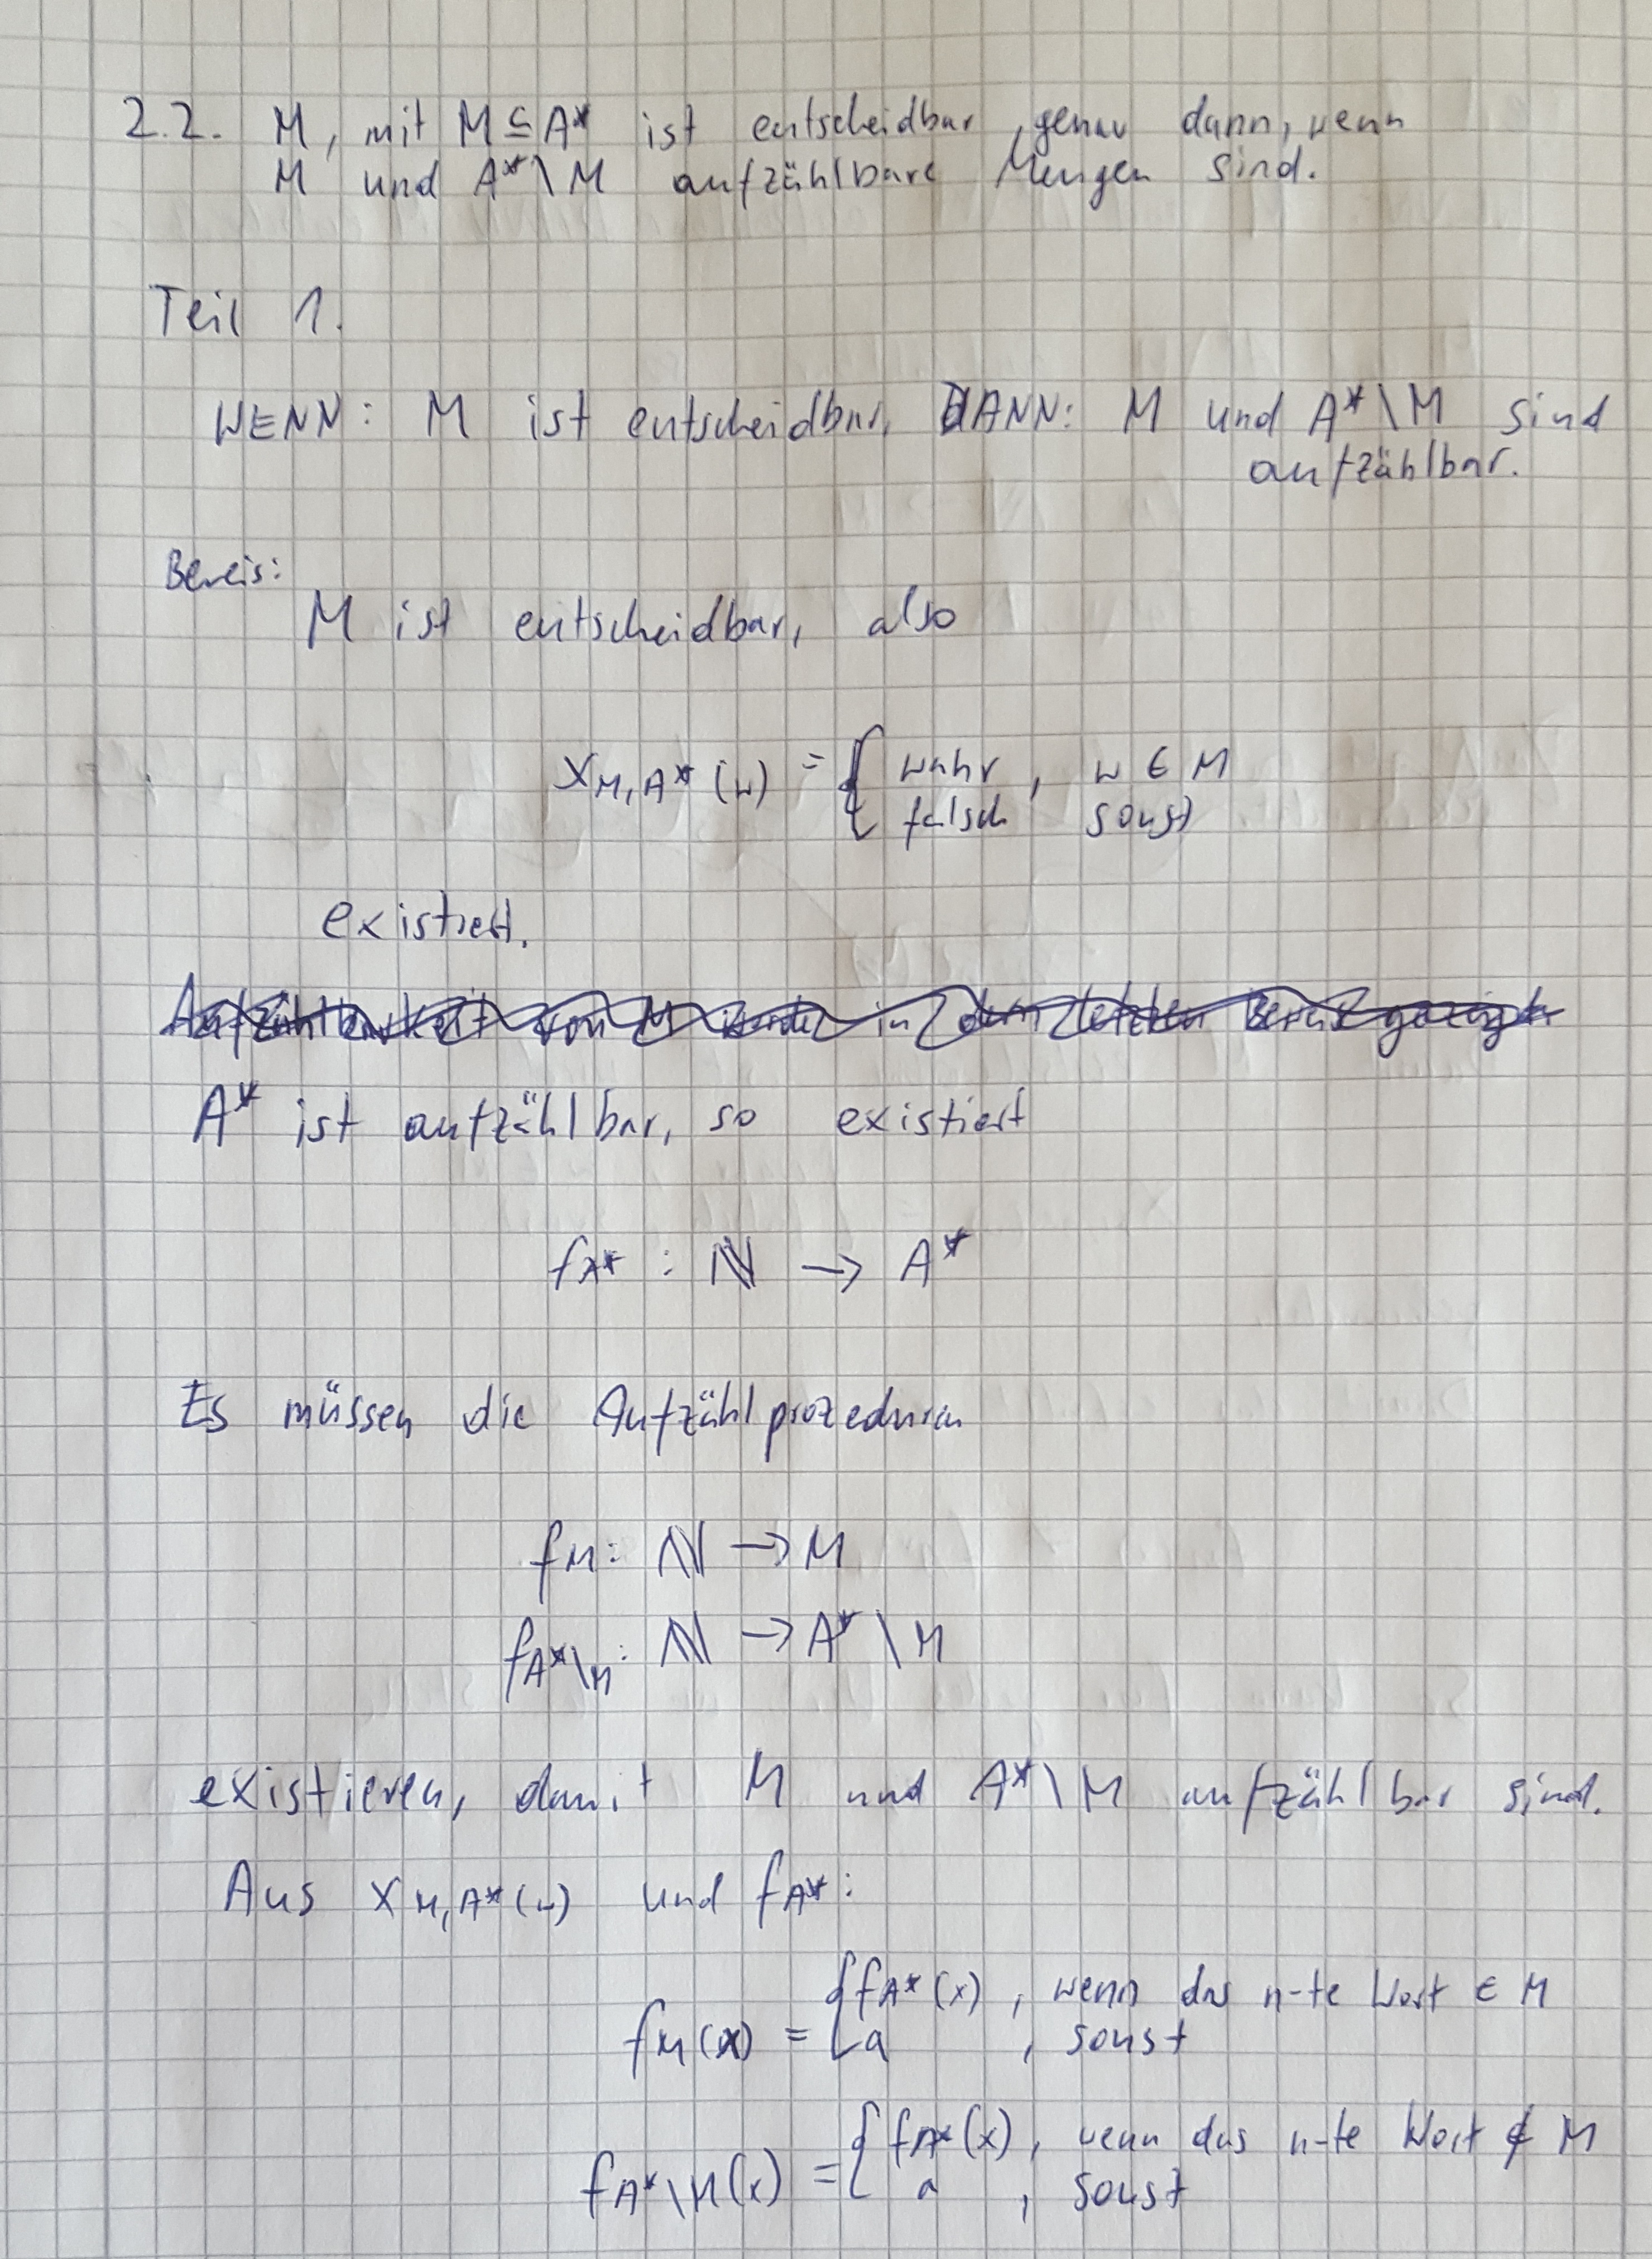 2.2. M, mit M ⊆ A* ist entscheidbar, genau dann, wenn
M und A* \ M aufzählbare Mengen sind.
Teil 1.
WENN: M ist entscheidbar, DANN: M und A* \ M sind
aufzählbar.
Beweis:
M ist entscheidbar, also
χ_{M,A*}(w) = { wahr , w ∈ M
falsch sonst
existiert.
A* ist aufzählbar, so existiert
f_{A*} : ℕ → A*
Es müssen die Aufzählprozeduren
f_M : ℕ → M
f_{A*\M} : ℕ → A* \ M
existieren, damit M und A* \ M aufzählbar sind.
Aus χ_{M,A*}(w) und f_{A*} :
f_M(x) = { f_{A*}(x) , wenn das n-te Wort ∈ M
a , sonst
f_{A*\M}(x) = { f_{A*}(x) , wenn das n-te Wort ∉ M
a , sonst